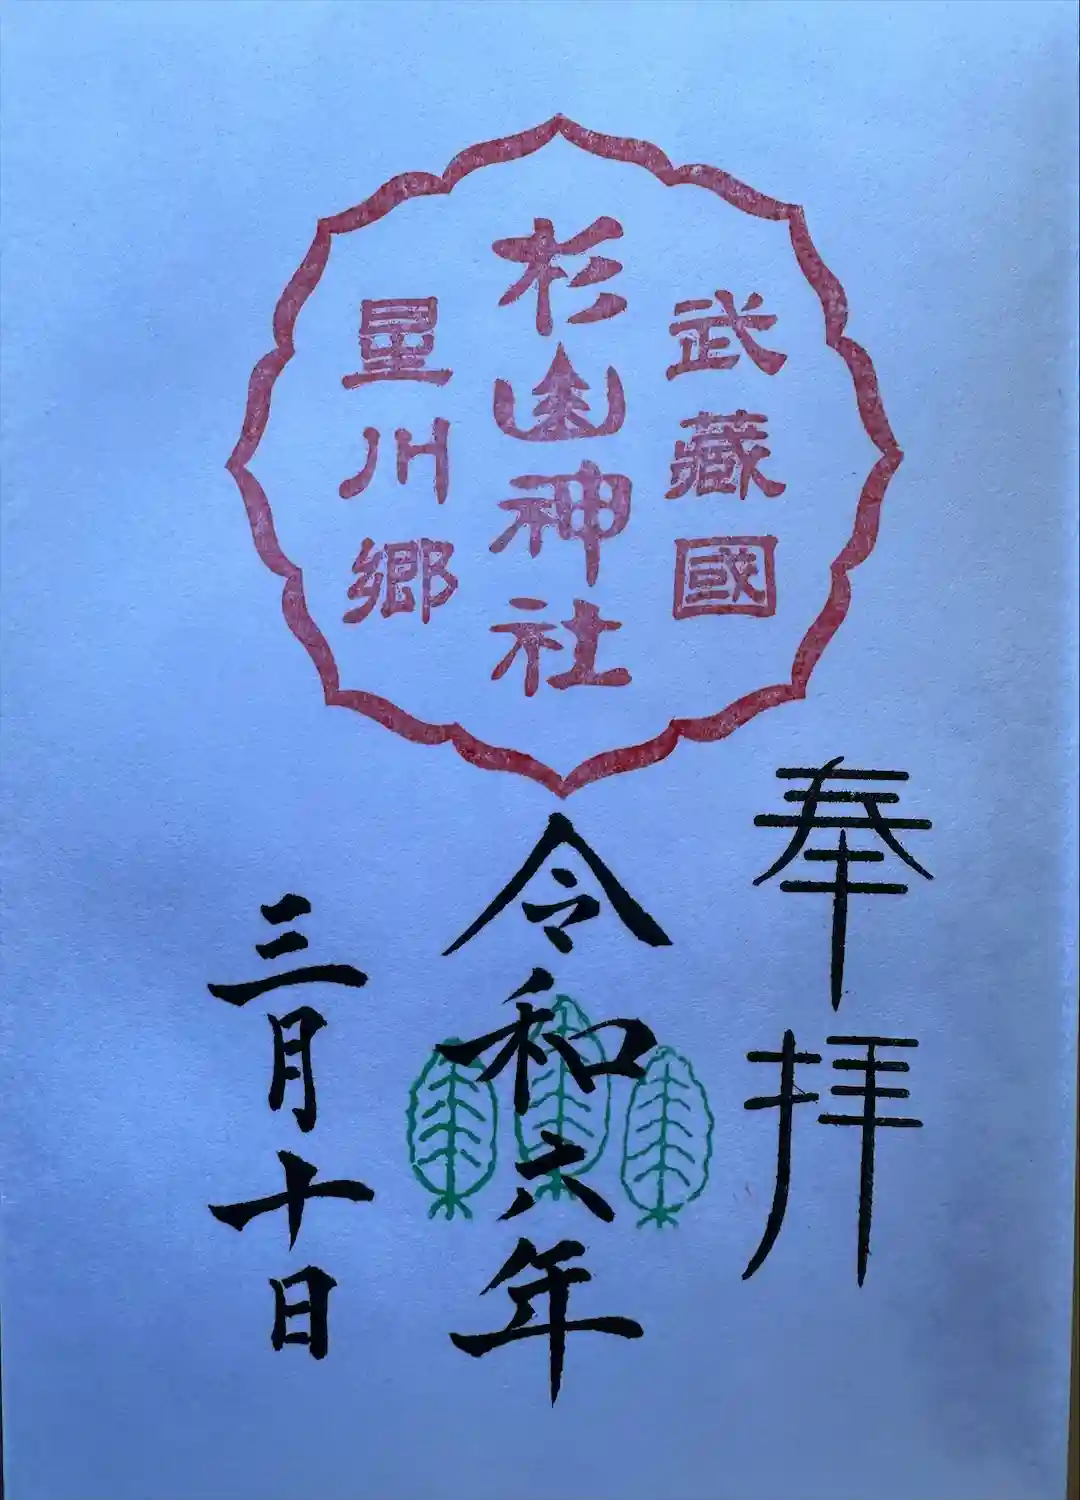 武藏國
杉山神社
星川郷
奉拝
令和六年
三月十日